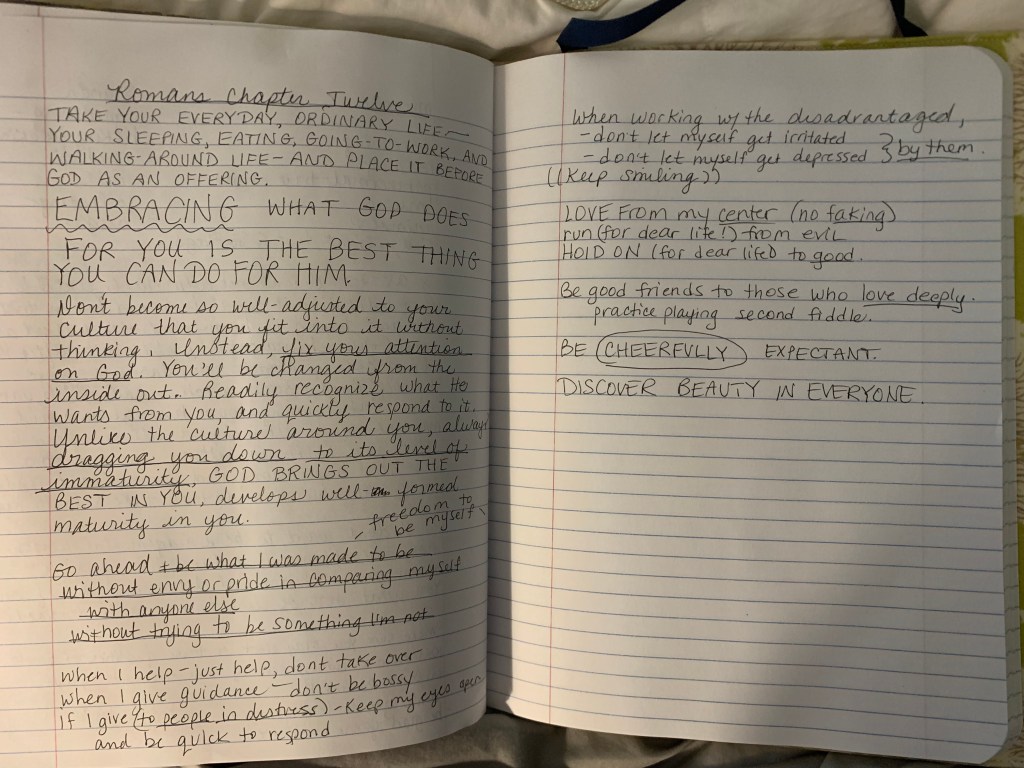 Romans Chapter Twelve
TAKE YOUR EVERYDAY, ORDINARY LIFE—
YOUR SLEEPING, EATING, GOING-TO-WORK, AND
WALKING-AROUND LIFE—AND PLACE IT BEFORE
GOD AS AN OFFERING.
EMBRACING WHAT GOD DOES
FOR YOU IS THE BEST THING
YOU CAN DO FOR HIM.
Don't become so well-adjusted to your
culture that you fit into it without
thinking. Instead, fix your attention
on God. You'll be changed from the
inside out. Readily recognize what He
wants from you, and quickly respond to it.
Unlike the culture around you, always
dragging you down to its level of
immaturity, GOD BRINGS OUT THE
BEST IN YOU, develops well-formed
maturity in you.
freedom to
be myself
Go ahead + be what I was made to be
without envy or pride in comparing myself
with anyone else
without trying to be something I'm not
When I help - just help, dont take over
When I give guidance - don't be bossy
If I give (to people in distress) - Keep my eyes open
and be quick to respond
When working w/ the disadvantaged,
- don't let myself get irritated
- don't let myself get depressed } by them.
((Keep smiling))
LOVE From my center (no faking)
run (for dear life!) from evil
HOLD ON (for dear life) to good.
Be good friends to those who love deeply.
practice playing second fiddle.
BE CHEERFULLY EXPECTANT.
DISCOVER BEAUTY IN EVERYONE.